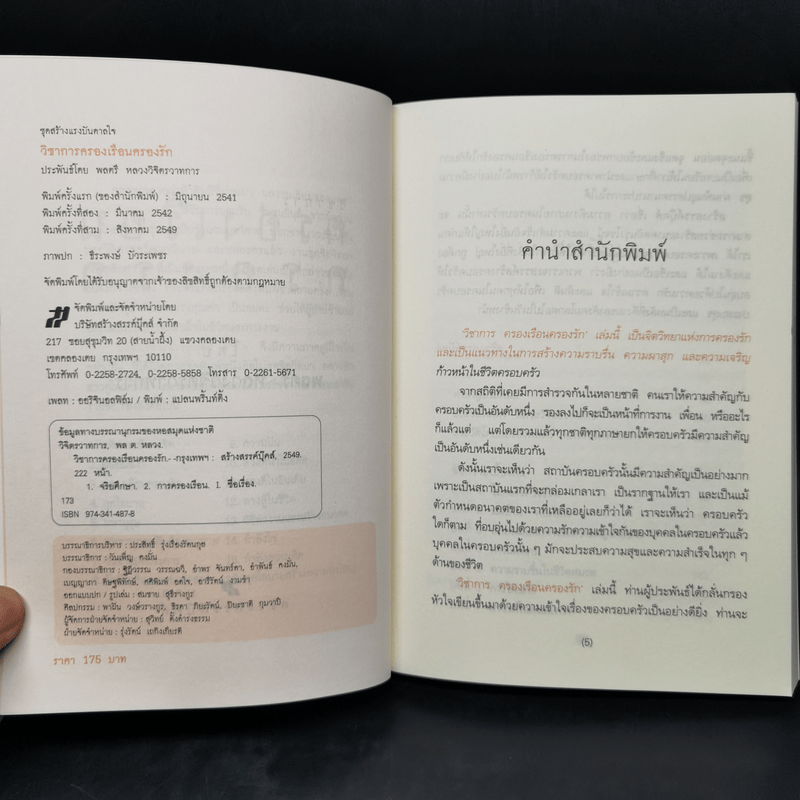 ชุดสร้างแรงบันดาลใจ
วิชาการครองเรือนครองรัก
ประพันธ์โดย พลตรี หลวงวิจิตรวาทการ
พิมพ์ครั้งแรก (ของสำนักพิมพ์) : มิถุนายน 2541
พิมพ์ครั้งที่สอง : มีนาคม 2542
พิมพ์ครั้งที่สาม : สิงหาคม 2549
ภาพปก : ธีระพงษ์ บัวระเพชร
จัดพิมพ์โดยได้รับอนุญาตจากเจ้าของลิขสิทธิ์ถูกต้องตามกฎหมาย
จัดพิมพ์และจัดจำหน่ายโดย
บริษัทสร้างสรรค์บุ๊คส์ จำกัด
217 ซอยสุขุมวิท 20 (สายน้ำผึ้ง) แขวงคลองเตย
เขตคลองเตย กรุงเทพฯ 10110
โทรศัพท์ 0-2258-2724, 0-2258-5858 โทรสาร 0-2261-5671
เพลท : ออริจินอลฟิล์ม / พิมพ์ : แปลนพริ้นท์ติ้ง
ข้อมูลทางบรรณานุกรมของหอสมุดแห่งชาติ
วิจิตรวาทการ, พล.ต. หลวง.
วิชาการครองเรือนครองรัก.--กรุงเทพฯ : สร้างสรรค์บุ๊คส์, 2549.
222 หน้า.
1. จริยศึกษา. 2. การครองเรือน. I. ชื่อเรื่อง.
173
ISBN 974-341-487-8
บรรณาธิการบริหาร : ประสิทธิ์ รุ่งเรืองรัตนกุล
บรรณาธิการ : วันเพ็ญ คงมั่น
กองบรรณาธิการ : ฐิฏิวรรณ วรรณฉวี, อำพร จันทร์คา, อำพันธ์ คงมั่น,
เบญญาภา ศิษฐพิทักษ์, ศศิพิมพ์ อดใจ, อารีรัตน์ งามขำ
ออกแบบปก / รูปเล่ม : สมชาย สุธีรางกูร
ศิลปกรรม : พาฝัน วงษ์วรางกูร, ธีรดา ภิยะรัตน์, ปิยะชาติ กุมวาปี
ผู้จัดการฝ่ายจัดจำหน่าย : สุวิทย์ ตั้งดำรงธรรม
ฝ่ายจัดจำหน่าย : รุ่งรัตน์ เถกิงเกียรติ
ราคา 175 บาท
คำนำสำนักพิมพ์
'วิชาการ ครองเรือนครองรัก' เล่มนี้ เป็นจิตวิทยาแห่งการครองรัก
และเป็นแนวทางในการสร้างความราบรื่น ความผาสุก และความเจริญ
ก้าวหน้าในชีวิตครอบครัว
จากสถิติที่เคยมีการสำรวจกันในหลายชาติ คนเราให้ความสำคัญกับ
ครอบครัวเป็นอันดับหนึ่ง รองลงไปก็จะเป็นหน้าที่การงาน เพื่อน หรืออะไร
ก็แล้วแต่ แต่โดยรวมแล้วทุกชาติทุกภาษายกให้ครอบครัวมีความสำคัญ
เป็นอันดับหนึ่งเช่นเดียวกัน
ดังนั้นเราจะเห็นว่า สถาบันครอบครัวนั้นมีความสำคัญเป็นอย่างมาก
เพราะเป็นสถาบันแรกที่จะกล่อมเกลาเรา เป็นรากฐานให้เรา และเป็นแม้
ตัวกำหนดอนาคตของเราที่เหลืออยู่เลยก็ว่าได้ เราจะเห็นว่า ครอบครัว
ใดก็ตาม ที่อบอุ่นไปด้วยความรักความเข้าใจกันของบุคคลในครอบครัวแล้ว
บุคคลในครอบครัวนั้น ๆ มักจะประสบความสุขและความสำเร็จในทุก ๆ
ด้านของชีวิต
'วิชาการ ครองเรือนครองรัก' เล่มนี้ ท่านผู้ประพันธ์ได้กลั่นกรอง
หัวใจเขียนขึ้นมาด้วยความเข้าใจเรื่องของครอบครัวเป็นอย่างดียิ่ง ท่านจะ
(5)